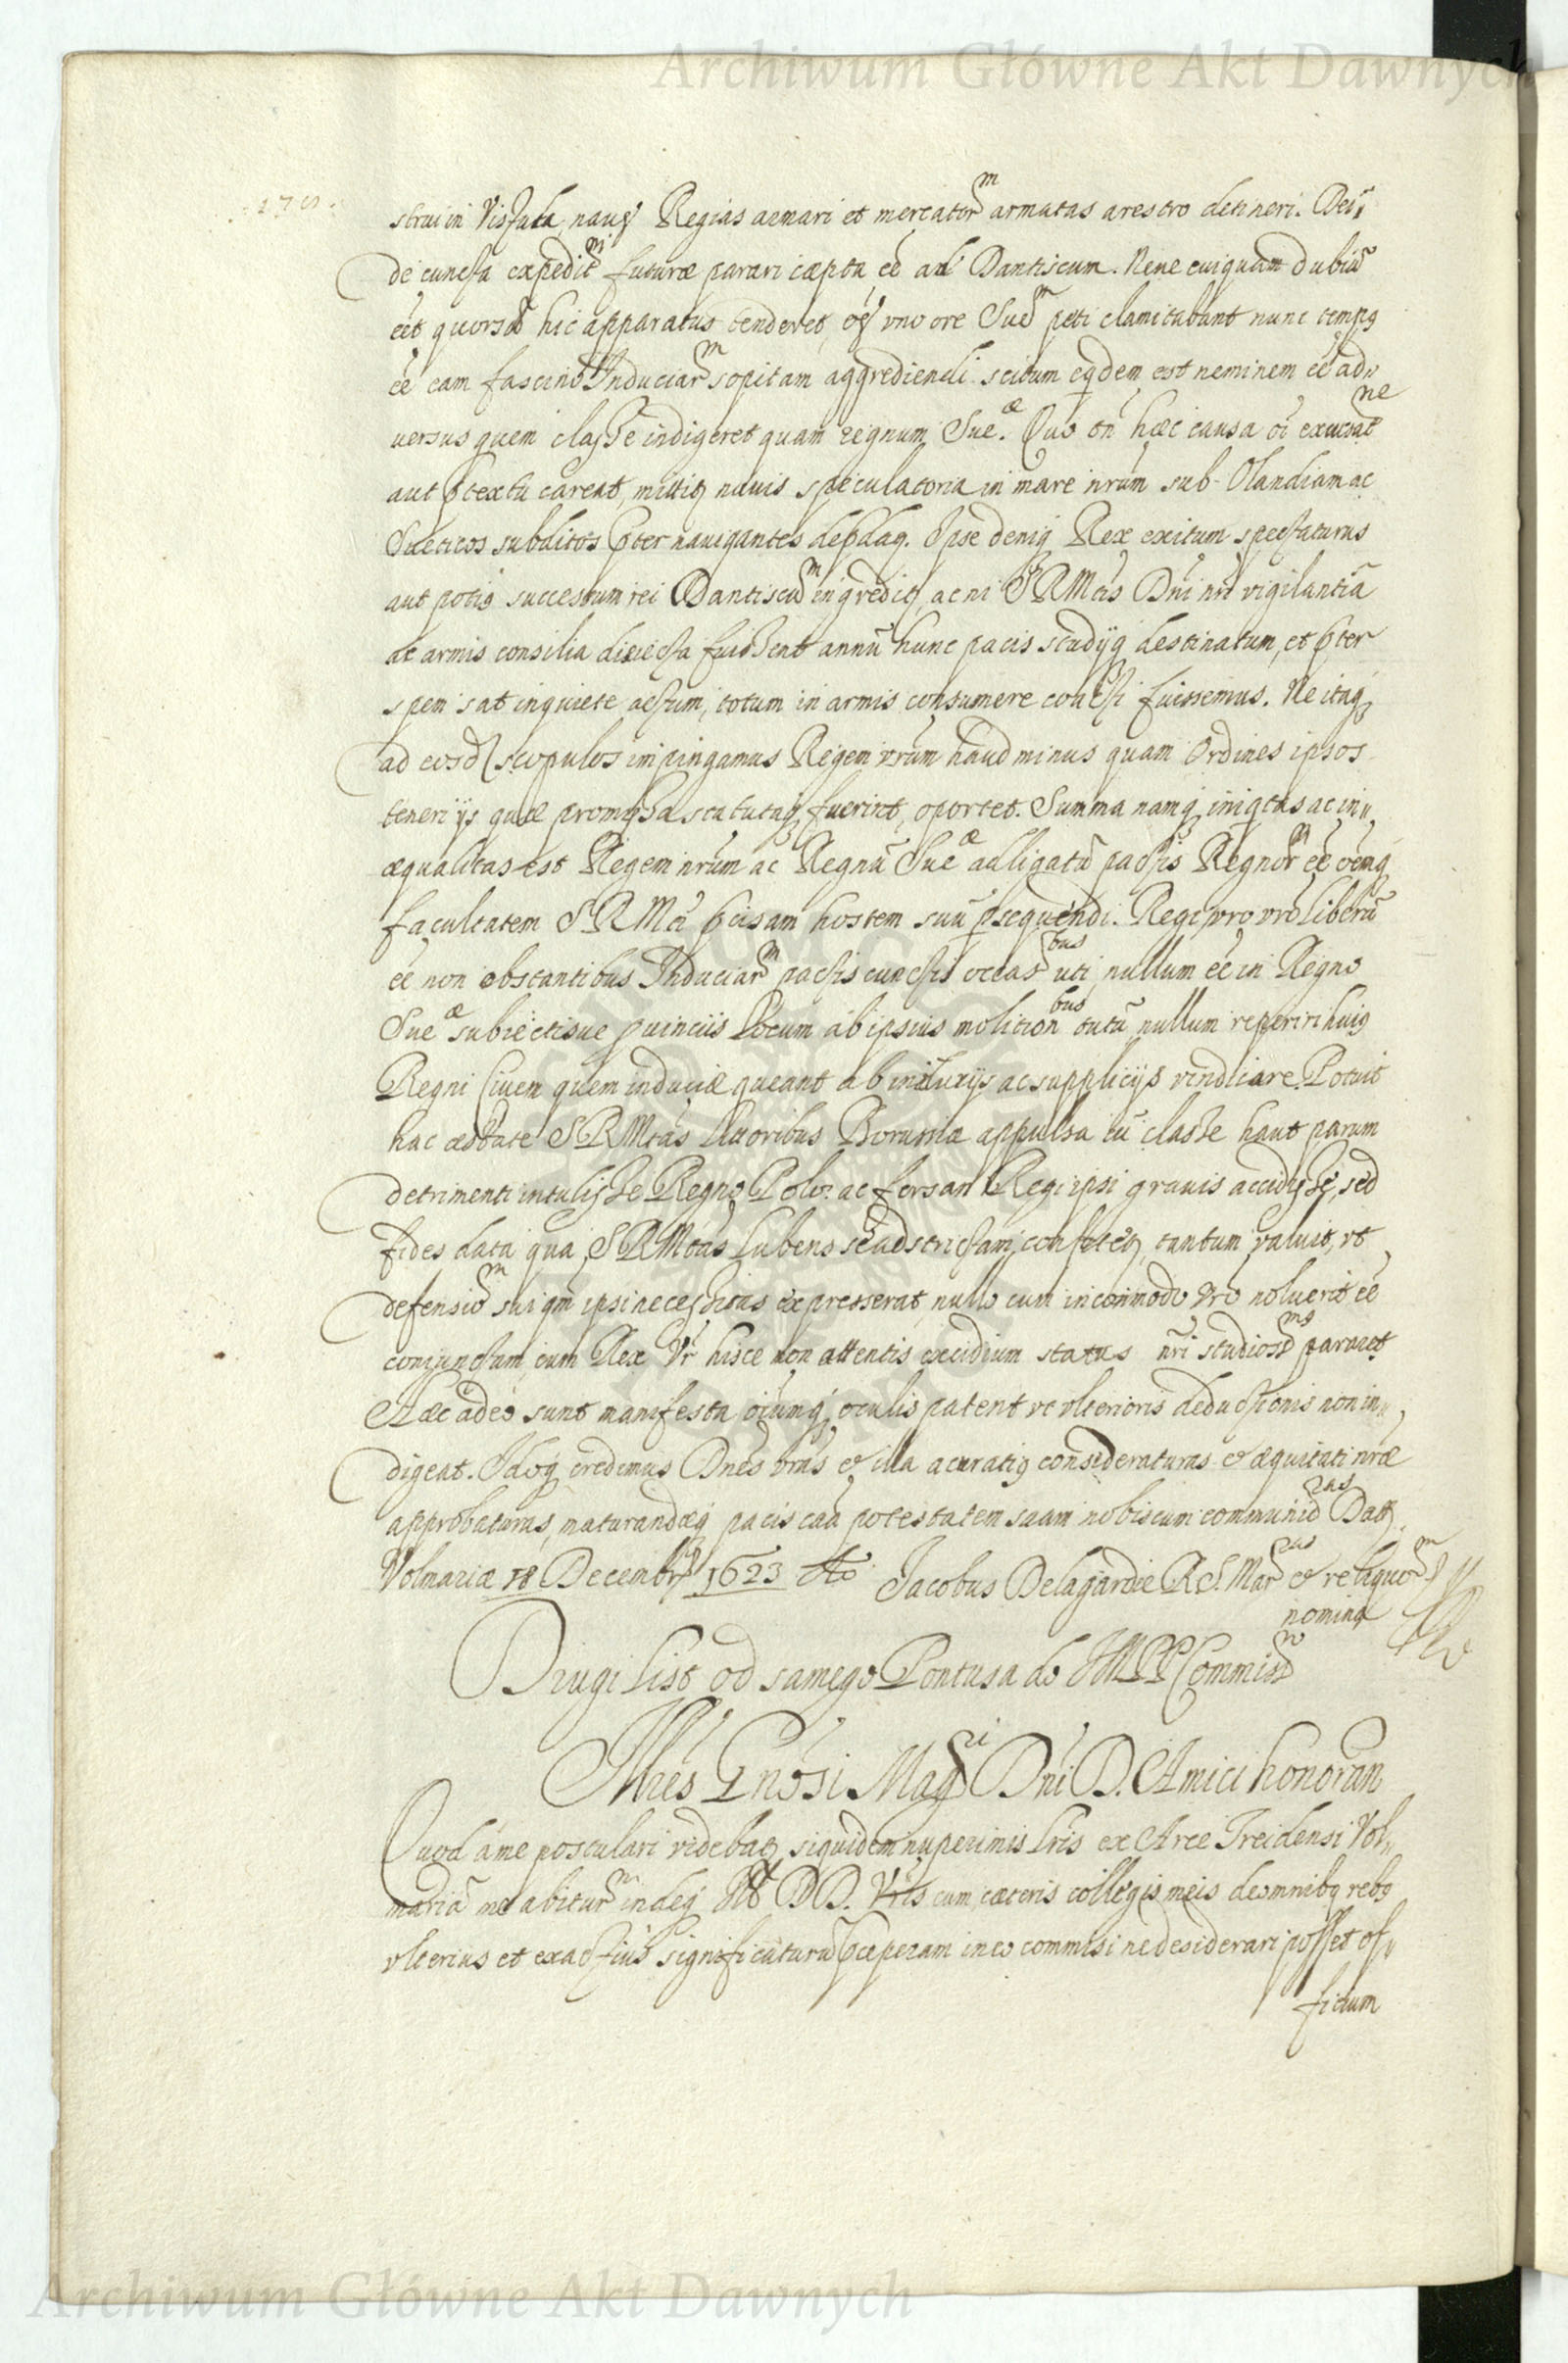 Archiwum Główne Akt Dawnych
strui in Vistula, naues Regias armari et mercator^m armatas aresto detineri. Dein„
de cuncta expedit^ni futuræ parari cæpta eẽ ad Dantiscum. Nene cuiquam dubiũ
eẽt quorsũ hic apparatus tenderet, oẽs vno ore Sue^m peti clamitabant nunc tempꝰ
eẽ eam fascino Induciar^m sopitam aggrediendi. scitum eqdem est neminem eẽ ad„
uersus quem classe indigeret quam regnum Sue^æ. Quo tñ hæc causa oĩ
aut ptextu careat, mittiꝭ nauis speculatoria in mare nrũm sub Olandiam ac
Sueticos subditos pter nauigantes depdaꝭ. Ipse deniq Rex exitum spectaturus
aut potiꝰ successum rei Dantiscũ^m ingrediꝭ, ac ni SRMtis Dni nri vigilantiã
ac armis consilia disiecta fuissent annũ hunc pacis studijq destinatum, et pter
spem sat inquiete actum, totum in armis consumere coacti fuissemus. Ne itaq
ad eosd scopulos impingamus Regem vrũm haud minus quam Ordines ipsos
teneri ijs quæ promissa statutaq fuerint, oportet. Summa namq iniqtas ac in„
æqualitas est Regem nrũm ac Regnũ Sue^æ alligatũ pactis Regnor^m eẽ oẽmq
facultatem SRMti pcisam hostem suũ psequendi. Regi vro vrõ liberũ
eẽ non obstantibus Induciar^m pactis cunctis occas^bus uti, nullum eẽ in Regno
Sue^æ subiectisue puinciis Locum ab ipsius molition^bus tutũ nullum reperiri huiꝰ
Regni Ciuem quem induciæ queant ab iniurijs ac supplicijs vindicare. Potuit
hac æstate SRMtas littoribus Borussiæ appulsa cũ classe haut parum
detrimenti intulisse Regno Polo: ac forsan Regi ipsi grauis accidisse, sed
fides data qua SRMtas lubens se adstrictam confiteꝭ, tantum valuit, vt
defensio^m sui qm ipsi necessitas expresserat, nullo cum incommodo vrõ noluerit eẽ
conjunctam, cum Rex Vr̃ hisce non attentis excidium status nr̃i studios^mẽ pararet
Hæc adeo sunt manifesta oiũmq oculis patent vt vlterioris deductionis non in„
digeat. Idoq credimus Dnẽs vrãs et illa accuratiꝰ consideraturas et æquitati nrǽ
approbaturas, maturandæq pacis caã potestatem suam nobiscum communic^uas Datt
Volmariæ 18 Decembr^is 1623 Ao Jacobus Delagardie R.S. Mar^cus et reliquor^m
nomine
Drugi List od samego Pontusa do IMPP Commis^w
Illres Gnõsi Mag^ci Dni D. Amici honoran
Quod a me postulari videbaꝭ, siquidem nuperimis Lris ex Arce Treidensi Vol„
mariã me abitur^m indeq Ill DD. Vris cum cæteris collegis meis deomnibꝰ rebꝰ
vlterius et exactius significaturũ pceperam in eo commisi ne desiderari posset of„
ficium
Archiwum Główne Akt Dawnych